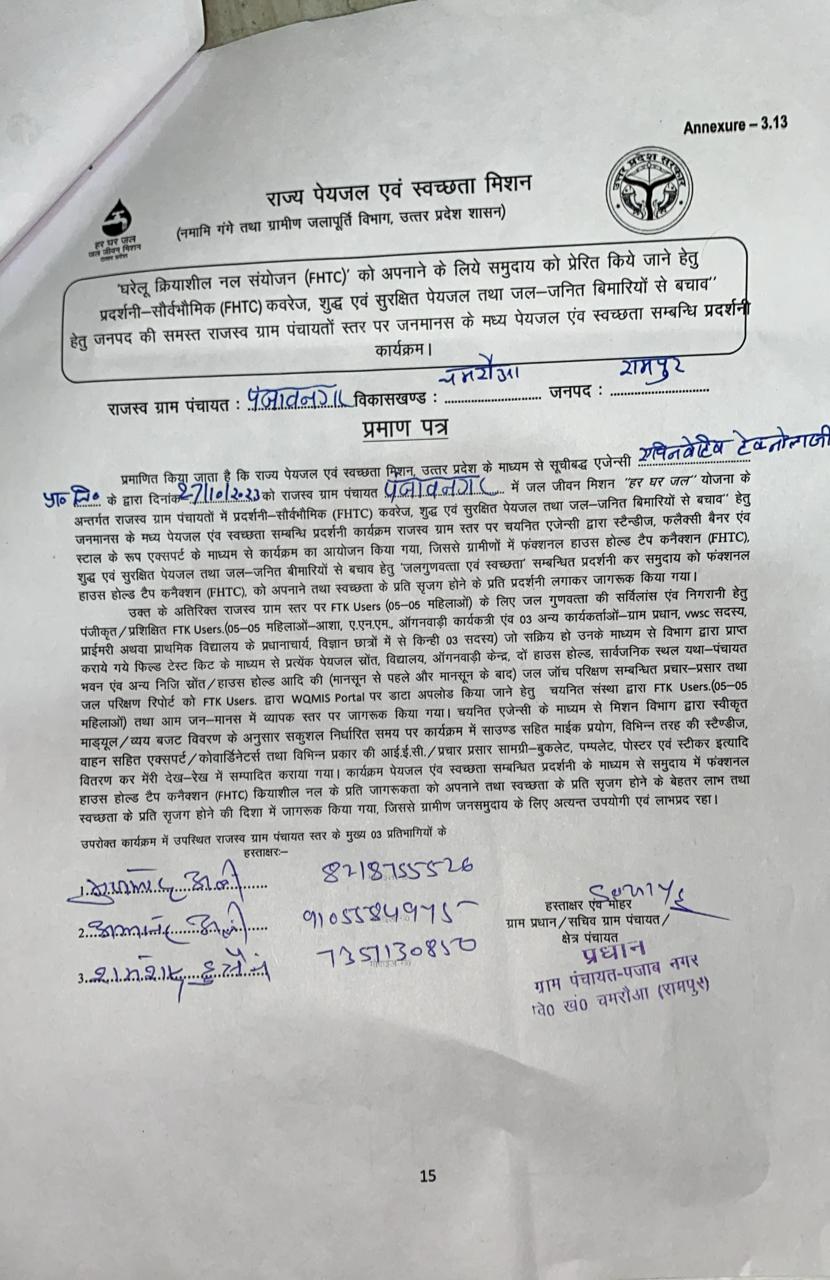 Annexure – 3.13
राज्य पेयजल एवं स्वच्छता मिशन
(नमामि गंगे तथा ग्रामीण जलापूर्ति विभाग, उत्तर प्रदेश शासन)
उत्तर प्रदेश सरकार
हर घर जल
जल जीवन मिशन
उत्तर प्रदेश
'घरेलू क्रियाशील नल संयोजन (FHTC)' को अपनाने के लिये समुदाय को प्रेरित किये जाने हेतु
प्रदर्शनी–सौर्वभौमिक (FHTC) कवरेज, शुद्ध एवं सुरक्षित पेयजल तथा जल–जनित बिमारियों से बचाव"
हेतु जनपद की समस्त राजस्व ग्राम पंचायतों स्तर पर जनमानस के मध्य पेयजल एंव स्वच्छता सम्बन्धि प्रदर्शनी
कार्यक्रम।
राजस्व ग्राम पंचायत : पंजावनगर विकासखण्ड : चमरौआ जनपद : रामपुर
प्रमाण पत्र
प्रमाणित किया जाता है कि राज्य पेयजल एवं स्वच्छता मिशन, उत्तर प्रदेश के माध्यम से सूचीबद्ध एजेन्सी टेक्नोलाजी
प्रा० लि० के द्वारा दिनांक 27/10/2023 को राजस्व ग्राम पंचायत पंजावनगर में जल जीवन मिशन "हर घर जल" योजना के
अन्तर्गत राजस्व ग्राम पंचायतों में प्रदर्शनी–सौर्वभौमिक (FHTC) कवरेज, शुद्ध एवं सुरक्षित पेयजल तथा जल–जनित बिमारियों से बचाव" हेतु
जनमानस के मध्य पेयजल एंव स्वच्छता सम्बन्धि प्रदर्शनी कार्यक्रम राजस्व ग्राम स्तर पर चयनित एजेन्सी द्वारा स्टैन्डीज, फलैक्सी बैनर एंव
स्टाल के रूप एक्सपर्ट के माध्यम से कार्यक्रम का आयोजन किया गया, जिससे ग्रामीणों में फंक्शनल हाउस होल्ड टैप कनैक्शन (FHTC),
शुद्ध एवं सुरक्षित पेयजल तथा जल–जनित बीमारियों से बचाव हेतु 'जलगुणवत्ता एवं स्वच्छता' सम्बन्धित प्रदर्शनी कर समुदाय को फंक्शनल
हाउस होल्ड टैप कनैक्शन (FHTC), को अपनाने तथा स्वच्छता के प्रति सृजग होने के प्रति प्रदर्शनी लगाकर जागरूक किया गया।
उक्त के अतिरिक्त राजस्व ग्राम स्तर पर FTK Users (05–05 महिलाओं) के लिए जल गुणवत्ता की सर्विलांस एंव निगरानी हेतु
पंजीकृत/प्रशिक्षित FTK Users.(05–05 महिलाओं–आशा, ए.एन.एम., ऑगनवाड़ी कार्यकत्री एंव 03 अन्य कार्यकर्ताओं–ग्राम प्रधान, vwsc सदस्य,
प्राईमरी अथवा प्राथमिक विद्यालय के प्रधानाचार्य, विज्ञान छात्रों में से किन्ही 03 सदस्य) जो सक्रिय हो उनके माध्यम से विभाग द्वारा प्राप्त
कराये गये फिल्ड टेस्ट किट के माध्यम से प्रत्येक पेयजल स्रोंत, विद्यालय, ऑगनवाड़ी केन्द्र, दों हाउस होल्ड, सार्वजनिक स्थल यथा–पंचायत
भवन एंव अन्य निजि स्रोंत/हाउस होल्ड आदि की (मानसून से पहले और मानसून के बाद) जल जॉच परिक्षण सम्बन्धित प्रचार–प्रसार तथा
जल परिक्षण रिपोर्ट को FTK Users. द्वारा WQMIS Portal पर डाटा अपलोड किया जाने हेतु चयनित संस्था द्वारा FTK Users.(05–05
महिलाओं) तथा आम जन–मानस में व्यापक स्तर पर जागरूक किया गया। चयनित एजेन्सी के माध्यम से मिशन विभाग द्वारा स्वीकृत
माड्यूल/व्यय बजट विवरण के अनुसार सकुशल निर्धारित समय पर कार्यक्रम में साउण्ड सहित माईक प्रयोग, विभिन्न तरह की स्टैण्डीज,
वाहन सहित एक्सपर्ट/कोवार्डिनेटर्स तथा विभिन्न प्रकार की आई.ई.सी./प्रचार प्रसार सामग्री–बुकलेट, पम्पलेट, पोस्टर एवं स्टीकर इत्यादि
वितरण कर मेंरी देख–रेख में सम्पादित कराया गया। कार्यक्रम पेयजल एंव स्वच्छता सम्बन्धित प्रदर्शनी के माध्यम से समुदाय में फंक्शनल
हाउस होल्ड टैप कनैक्शन (FHTC) कियाशील नल के प्रति जागरूकता को अपनाने तथा स्वच्छता के प्रति सृजग होने के बेहतर लाभ तथा
स्वच्छता के प्रति सृजग होने की दिशा में जागरूक किया गया, जिससे ग्रामीण जनसमुदाय के लिए अत्यन्त उपयोगी एवं लाभप्रद रहा।
उपरोक्त कार्यक्रम में उपस्थित राजस्व ग्राम पंचायत स्तर के मुख्य 03 प्रतिभागियों के
हस्ताक्षरः–
1. अली 8218755526
2. अली 9105584975
3. हुसैन 7351130850
हस्ताक्षर एंव मोहर
ग्राम प्रधान/सचिव ग्राम पंचायत/
क्षेत्र पंचायत
प्रधान
ग्राम पंचायत-पजाब नगर
वि० खं० चमरौआ (रामपुर)
15